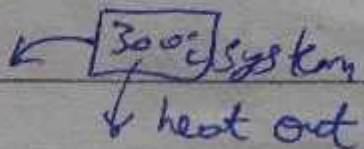 300°C system
heat out